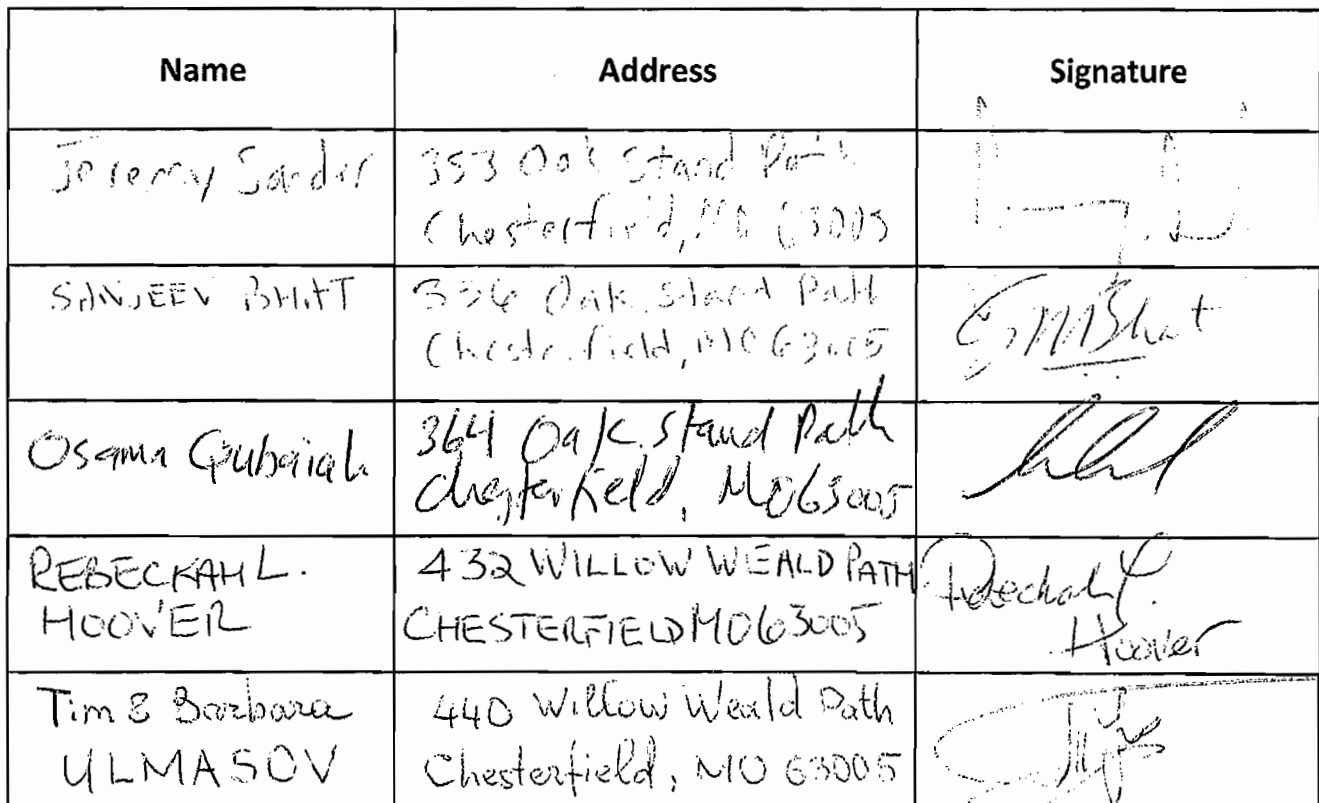 Name Address Signature
Jeremy Sander 353 Oak Stand Path
Chesterfield, MO 63005
SANJEEV BHATT 336 Oak Stand Path
Chesterfield, MO 63005
Osama Qubaiah 364 Oak Stand Path
Chesterfield, MO 63005
REBECKAH L. 432 WILLOW WEALD PATH Rebeckah L.
HOOVER CHESTERFIELD MO 63005 Hoover
Tim & Barbara 440 Willow Weald Path
ULMASOV Chesterfield, MO 63005